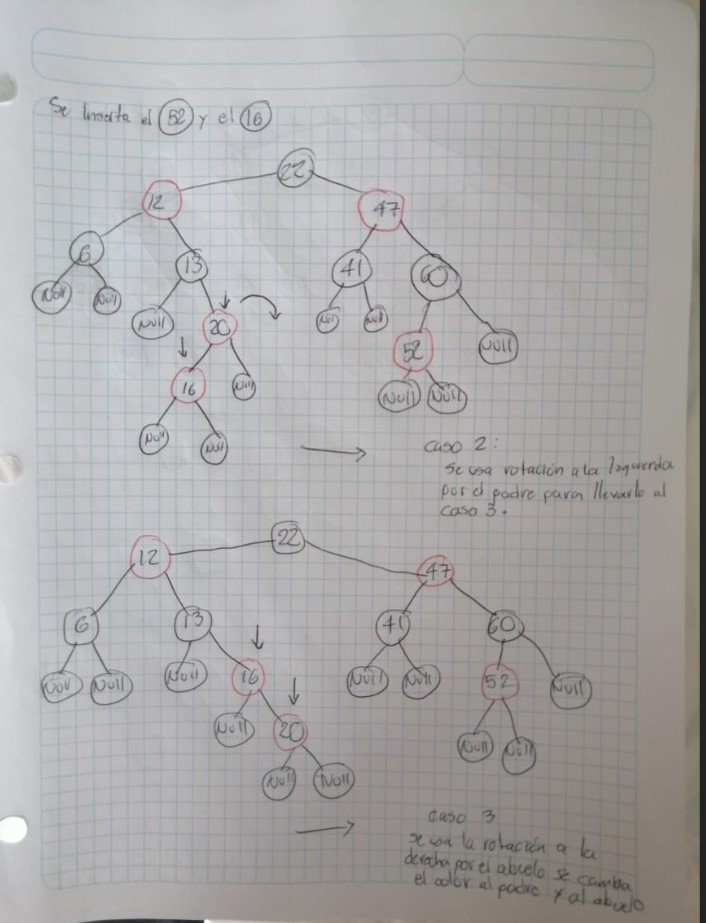 Se inserta el 52 y el 16
22
12 47
6 13 41 60
Null Null Null 20 Null Null 52 Null
16 Null Null Null
Null Null
caso 2:
se usa rotación a la Izquierda
por el padre para llevarlo al
caso 3.
22
12 47
6 13 41 60
Null Null Null 16 Null Null 52 Null
Null 20 Null Null
Null Null
caso 3
se usa la rotación a la
derecha por el abuelo se cambia
el color al padre y al abuelo